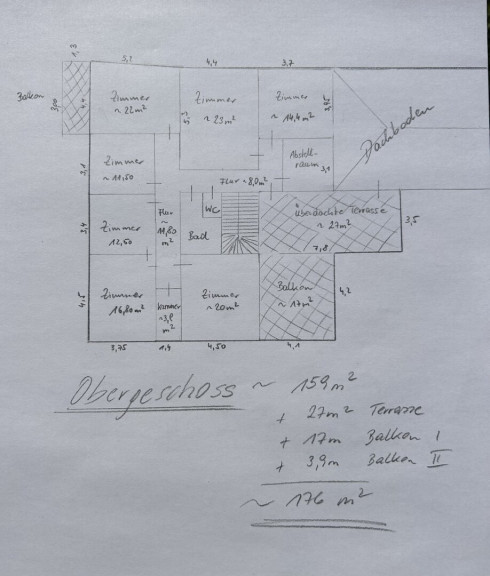 1,3
5,1 4,4 3,7
Balkon
3,00
4,2
Zimmer
~ 22m²
5,3
Zimmer
~ 23m²
Zimmer
~ 14,4m²
3,92
Dachboden
3,1
Zimmer
~ 11,50
Abstell-
raum
3,1
Flur ~ 8,0m²
2,4
Zimmer
12,60
Flur
~
11,80
m²
WC
Bad
Überdachte Terrasse
~ 27m²
7,8
3,5
4,5
Zimmer
16,80m²
Kammer
~3,8
m²
Zimmer
~ 20m²
Balkon
~ 17m²
4,2
3,75 1,4 4,50 4,1
Obergeschoss ~ 159m²
+ 27m² Terrasse
+ 17m Balkon I
+ 3,9m Balkon II
~ 176 m²